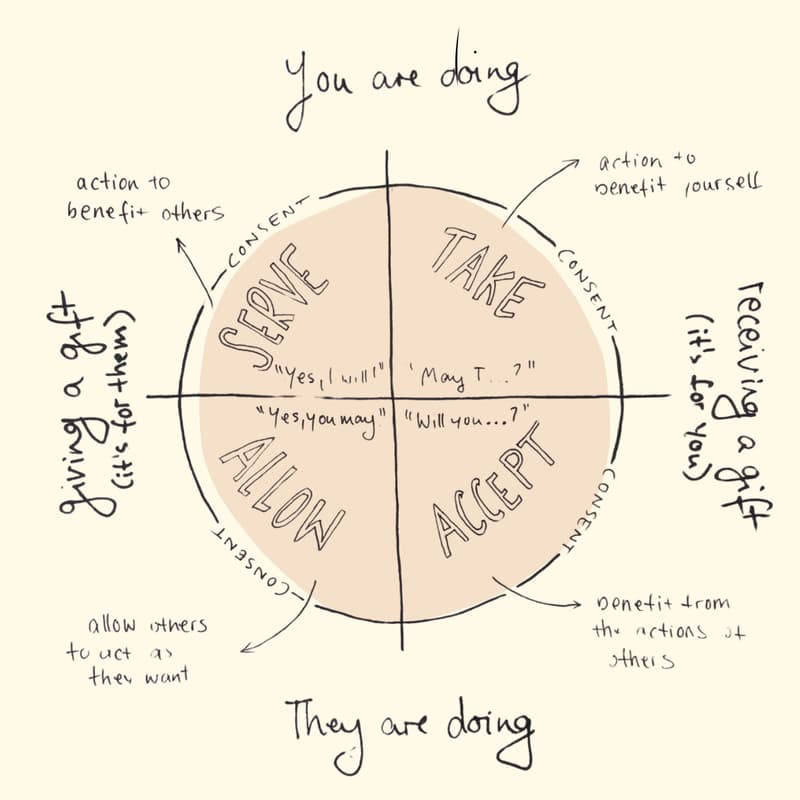 You are doing
action to
benefit others
action to
benefit yourself
CONSENT
CONSENT
SERVE
TAKE
"Yes, I will!"
'May I...?"
giving a gift
(it's for them)
receiving a gift
(it's for you)
"Yes, you may"
"Will you...?"
ALLOW
ACCEPT
CONSENT
CONSENT
allow others
to act as
they want
benefit from
the actions of
others
They are doing